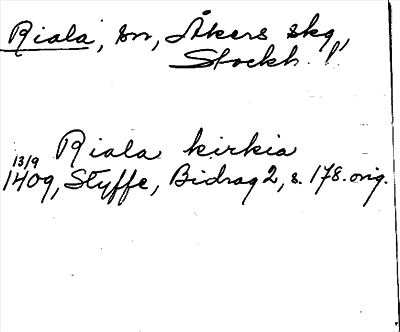 Riala, sn, Åkers skg,
Stockh.
Riala kirkia
13/9 1409, Styffe, Bidrag 2, s. 178. orig.